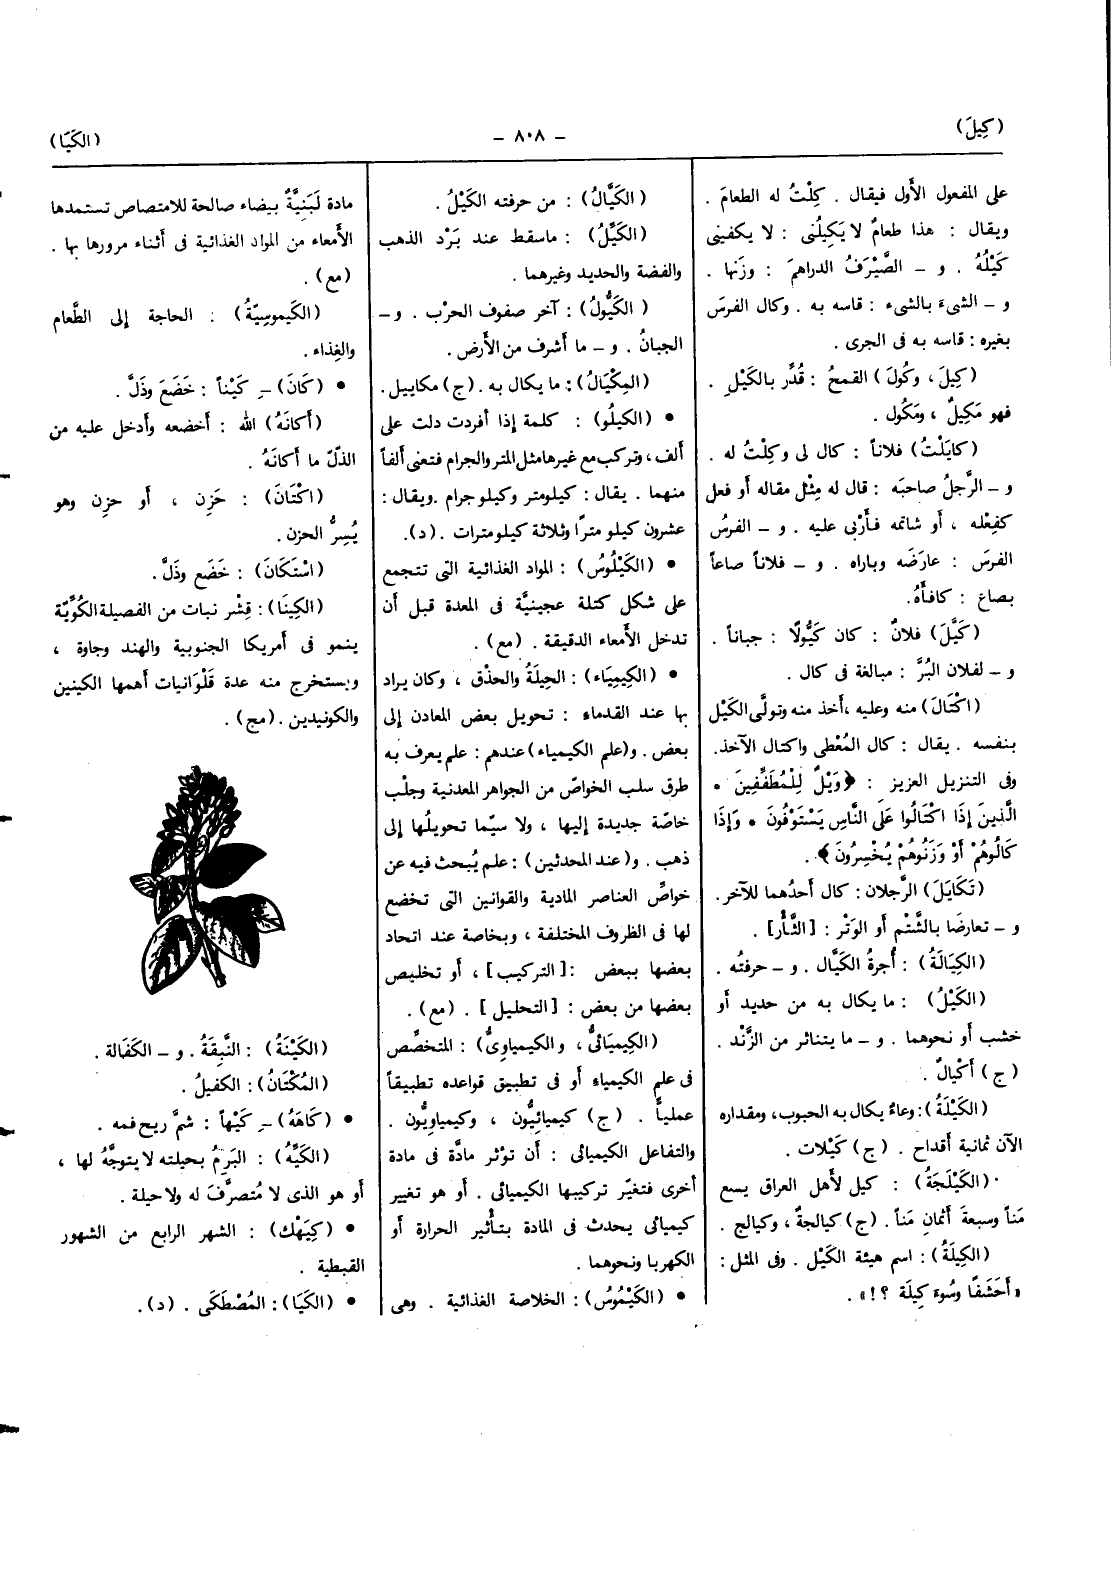 (كِيلَ)
— ٨٠٨ —
(الكَيّا)
على المفعول الأَول فيقال . كِلْتُ له الطعامَ .
ويقال : هذا طعامٌ لا يَكِيلُنى : لا يكفينى
كَيْلُهُ . و — الصَّيْرَفُ الدراهمَ : وزَنَها .
و — الشىءَ بالشىء : قاسه به . وكال الفرسَ
بغيره : قاسه به فى الجرى .
(كِيلَ ، وكُولَ) القمحُ : قُدِّر بالكَيْلِ .
فهو مَكِيلٌ ، ومَكُول .
(كايَلْتُ) فلاناً : كال لى وكِلْتُ له .
و — الرَّجلُ صاحبَه : قال له مِثْل مقاله أَو فعل
كفِعْله ، أَو شاتمه فأَرْبى عليه . و — الفرسُ
الفرسَ : عارَضَه وباراه . و — فلاناً صاعاً
بصاع : كافأَهُ.
(كَيَّلَ) فلانٌ : كان كَيُّولًا : جباناً .
و — لفلان البُرَّ : مبالغة فى كال .
(اكْتَالَ) منه وعليه ،أَخذ منه وتولَّى الكَيْل
بنفسه . يقال : كال المُعْطى واكتال الآخذ.
وفى التنزيل العزيز : ﴿وَيْلٌ لِلْمُطَفِّفِينَ •
الَّذِينَ إِذَا اكْتَالُوا عَلَى النَّاسِ يَسْتَوْفُونَ • وَإِذَا
كَالُوهُمْ أَوْ وَزَنُوهُمْ يُخْسِرُونَ﴾ .
(تَكَايَلَ) الرَّجلان : كال أَحدُهما للآخر.
و — تعارضَا بالشَّتْم أَو الوَتْر : [الثَّأْر] .
(الكِيَالَةُ) : أُجرةُ الكَيَّال . و — حرفتُه .
(الكَيْلُ) : ما يكال به من حديد أَو
خشب أَو نحوهما . و — ما يتناثر من الزَّنْد .
(ج) أَكْيالٌ .
(الكَيْلَةُ) : وعاءٌ يكال به الحبوب، ومقداره
الآن ثمانية أَقداح . (ج) كَيْلات .
(الكَيْلَجَةُ) : كيل لأَهل العراق يسع
مَناً وسبعةَ أَثمانِ مَناً . (ج) كيالجةٌ ، وكيالج .
(الكِيلَةُ) : اسم هيئة الكَيْل . وفى المثل :
«أَحَشَفًا وسُوءَ كِيلَة ؟!» .
(الكَيَّالُ) : من حرفته الكَيْلُ .
(الكَيِّلُ) : ماسقط عند بَرْد الذهب
والفضة والحديد وغيرهما .
(الكَيُّولُ) : آخر صفوف الحرْب . و —
الجبانُ . و — ما أَشرف من الأَرض .
(المِكْيَالُ) : ما يكال به . (ج) مكاييل .
• (الكيلُو) : كلمة إذا أفردت دلت على
ألف ، وتركب مع غيرها مثل المتر والجرام فتعنى ألفاً
منهما . يقال : كيلومتر وكيلو جرام .ويقال :
عشرون كيلو مترًا وثلاثة كيلومترات . (د).
• (الكَيْلُوسُ) : المواد الغذائية التى تتجمع
على شكل كتلة عجينيَّة فى المعدة قبل أَن
تدخل الأَمعاء الدقيقة . (مع) .
• (الكِيمِيَاء) : الحِيلَةُ والحذْق ، وكان يراد
بها عند القدماء : تحويل بعض المعادن إلى
بعض . و(علم الكيمياء) عندهم : علم يعرف به
طرق سلب الخواصّ من الجواهر المعدنية وجلْب
خاصّة جديدة إليها ، ولا سيّما تحويلُها إلى
ذهب . و(عند المحدثين) : علم يُبحث فيه عن
خواصِّ العناصر المادية والقوانين التى تخضع
لها فى الظروف المختلفة ، وبخاصة عند اتحاد
بعضها ببعض : [التركيب] ، أَو تخليص
بعضها من بعض : [التحليل] . (مع) .
(الكِيمِيَائىُّ ، والكيمياوىُّ) : المتخصِّص
فى علم الكيمياء أَو فى تطبيق قواعده تطبيقاً
عملياً . (ج) كيميائيُّون ، وكيمياويُّون .
والتفاعل الكيميائى : أَن تؤثر مادَّة فى مادة
أخرى فتغيّر تركيبها الكيميائى . أَو هو تغيير
كيميائى يحدث فى المادة بتأْثير الحرارة أَو
الكهربا ونحوهما .
• (الكَيْمُوسُ) : الخلاصة الغذائية . وهى
مادة لَبَنيَّةٌ بيضاء صالحة للامتصاص تستمدها
الأَمعاء من المواد الغذائية فى أَثناء مرورها بها .
(مع) .
(الكَيموسِيّةُ) : الحاجة إلى الطَّعام
والغِذاء .
• (كَانَ) — كَيْناً : خَضَعَ وذَلَّ .
(أَكانَهُ) الله : أَخضعه وأَدخل عليه من
الذلّ ما أَكانَهُ .
(اكْتَانَ) : حَزِن ، أَو حزِن وهو
يُسِرُّ الحزن .
(اسْتَكَانَ) : خَضَع وذَلَّ .
(الكِينَا) : قِشْر نبات من الفصيلة الكُوِّيّة
ينمو فى أمريكا الجنوبية والهند وجاوة ،
ويستخرج منه عدة قَلْوَانيات أهمها الكينين
والكونيدين . (مج) .
(الكَيْنَةُ) : النَّبِقَةُ . و — الكَفَالة .
(المُكْتَانُ) : الكفيلُ .
• (كَاهَهُ) — كَيْهاً : شمَّ ريح فمه .
(الكَيِّهُ) : البَرِمُ بحيلته لا يتوجَّهُ لها ،
أَو هو الذى لا مُتصرَّفَ له ولا حيلة .
• (كِيَهْك) : الشهر الرابع من الشهور
القبطية .
• (الكَيَا) : المُصْطَكَى . (د).